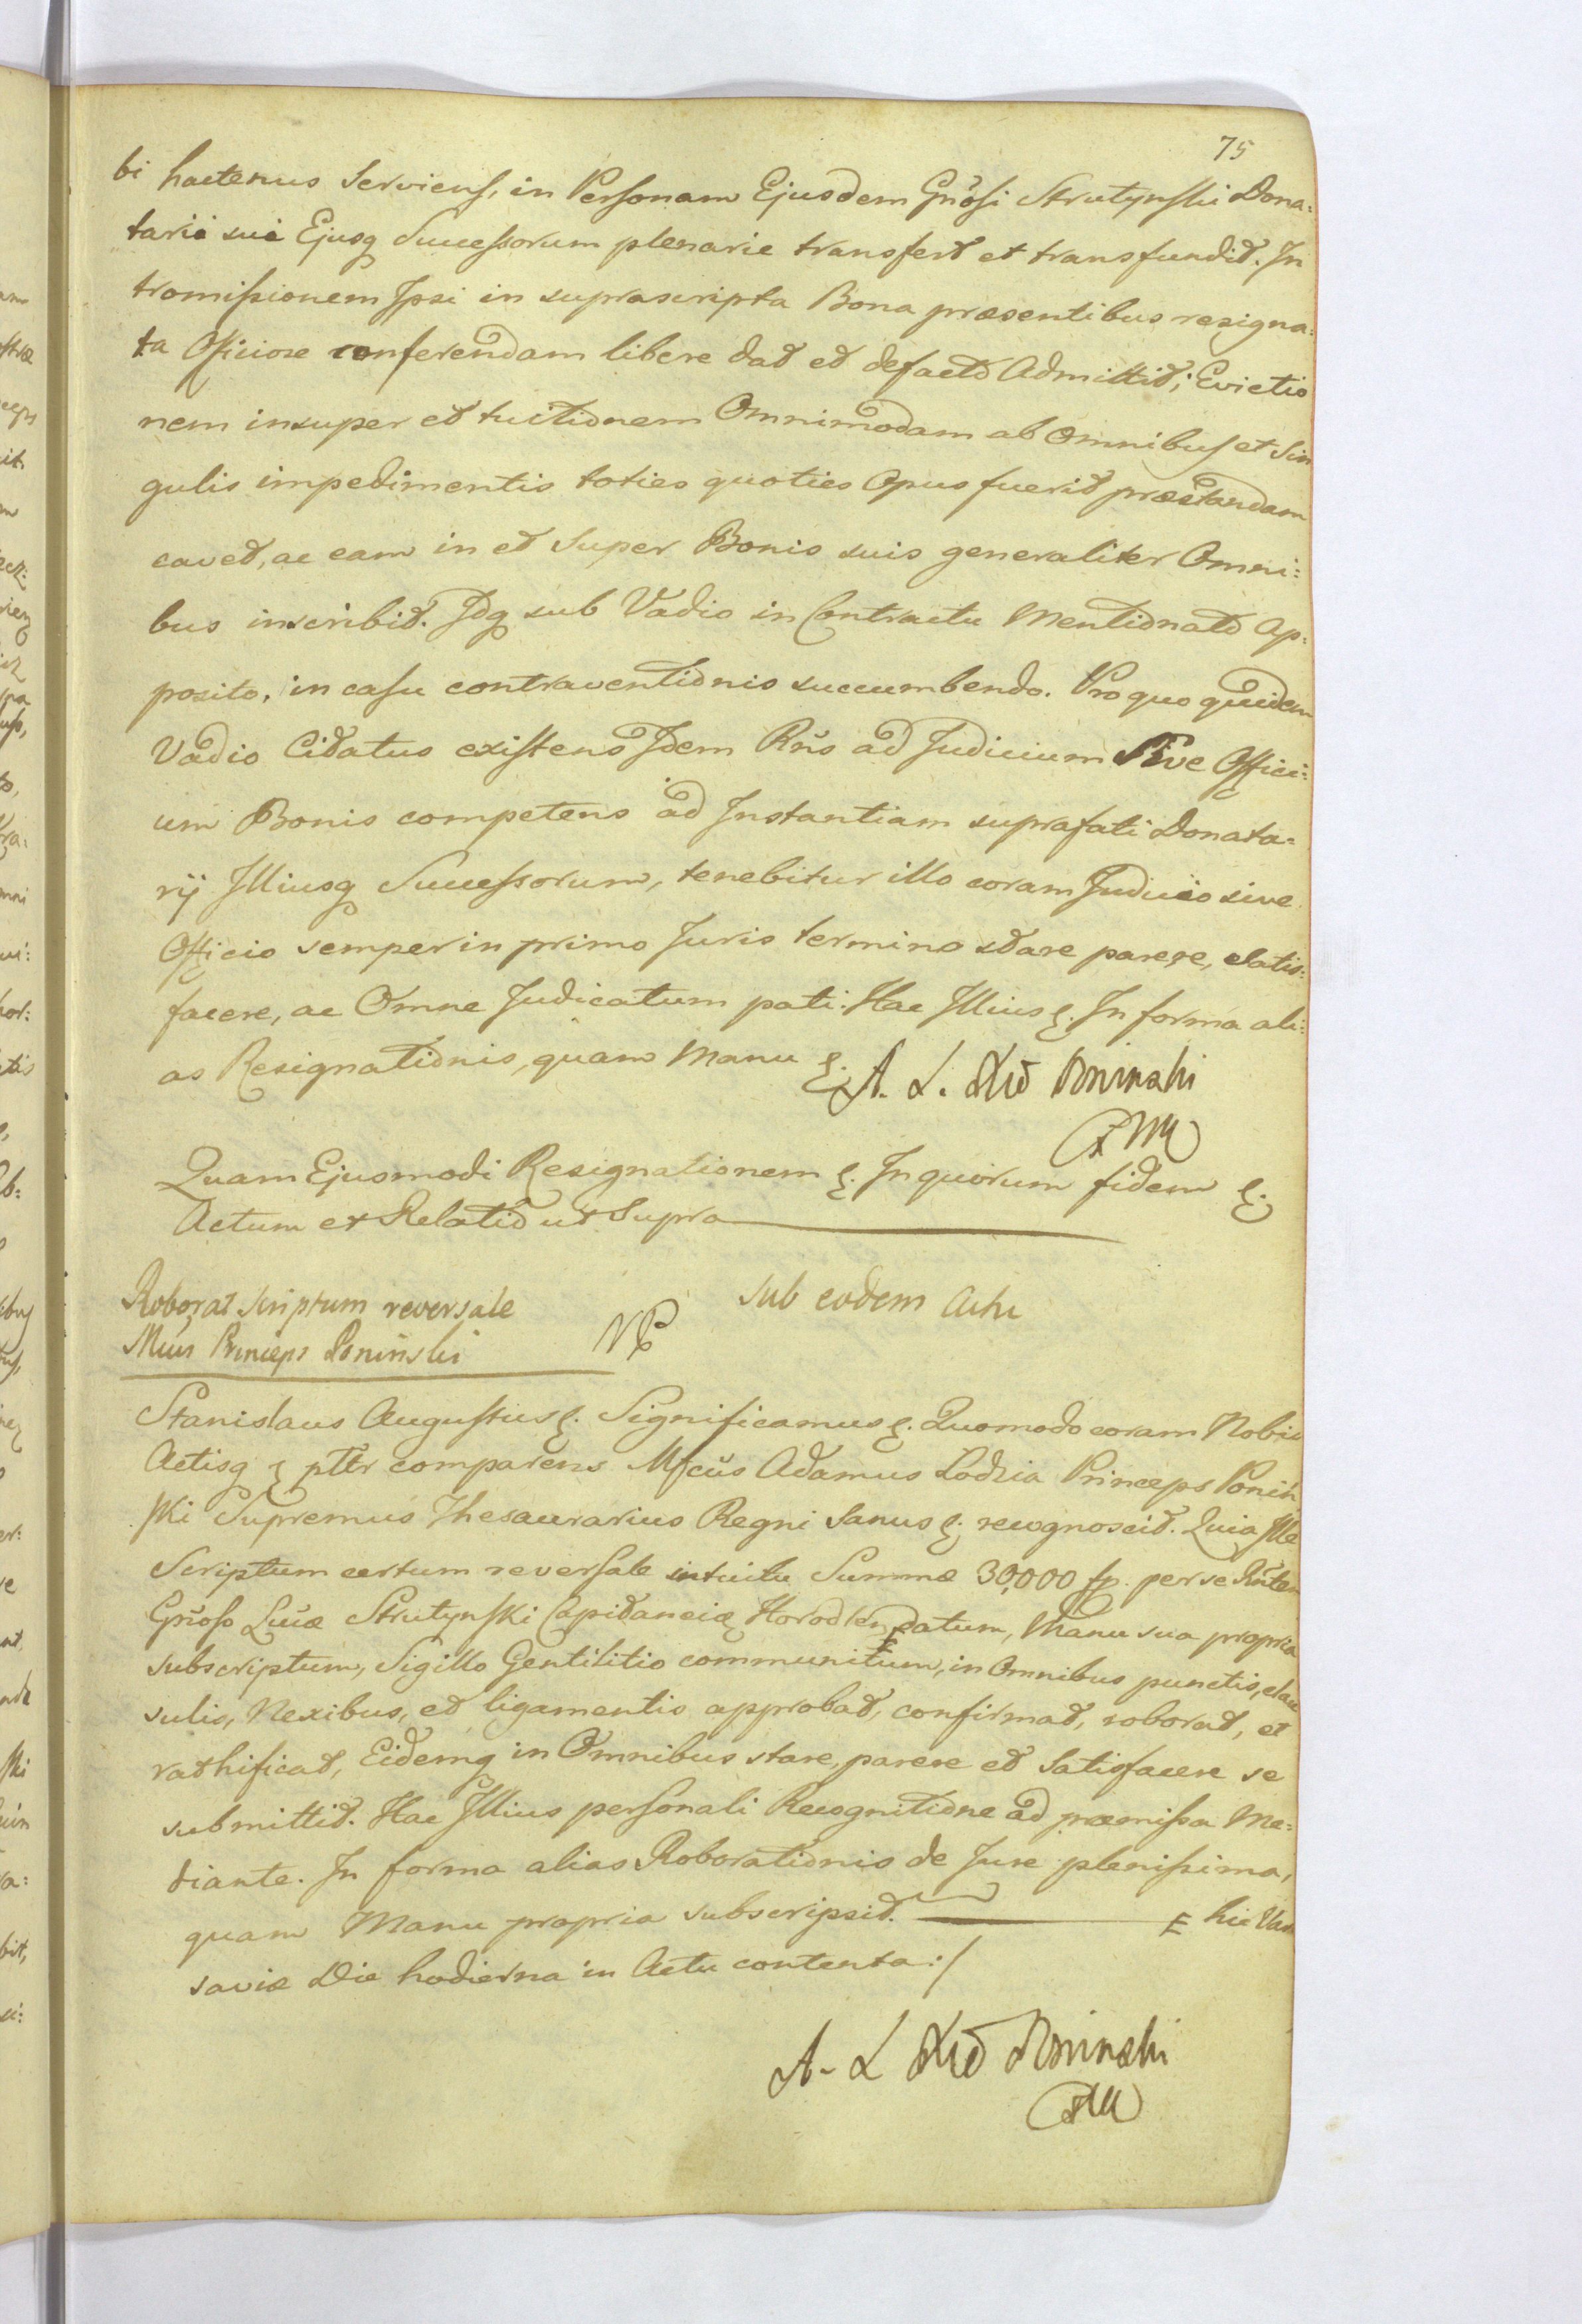 75
bi hactenus Serviens, in Personam Ejusdem Gnosi Strutynski Dona:
tarii sui Ejusq Successorum plenarie transfert et transfundit. In
tromissionem Ipsi in suprascripta Bona præsentibus resigna:
ta Officiose conferendam libere dat et defacto Admittit; Evictio
nem insuper et tuitionem Omnimodam ab Omnibus et Sin
gulis impedimentis toties quoties Opus fuerit præstandam
cavet, ac eam in et Super Bonis suis generaliter Omni:
bus inscribit. Idq sub Vadio in Contractu Mentionato Ap:
posito, in casu contraventionis succumbendo. Pro quo quidem
Vadio Citatus existens Idem Rns ad Judicium Sive Offici:
um Bonis competens ad Instantiam suprafati Donata:
rij Illiusq Successorum, tenebitur illo coram Judicio sive
Officio semper in primo Juris termino stare parere, satis:
facere, ac Omne Judicatum pati. Hac Illius &. In forma ali:
as Resignationis, quam Manu &. A. L. Xże Poninski
Quam Ejusmodi Resignationem &. In quorum fidem &.
Actum et Relatio ut Supra
Roborat scriptum reversale
Mcus Princeps Poninski
Sub eodem Actu
Stanislaus Augustus &. Significamus &. Quomodo coram Nobis
Actisq & pttr comparens Mfcus Adamus Lodzia Princeps Ponin
ski Supremus Thesaurarius Regni Sanus &. recognoscit. Quia Ille
Scriptum certum reversale intuitu Summæ 30,000 fp. per se Rntem
Gnoso Lucæ Strutynski Capitaneiæ Horodlen datum, Manu sua propria
subscriptum, Sigillo Gentilitio communitum, in Omnibus punctis, clau
sulis, Nexibus, et ligamentis approbat, confirmat, roborat, et
rathificat, Eidemq in Omnibus stare, parere et Satisfacere se
submittit. Hac Illius personali Recognitione ad præmissa Me:
diante. In forma alias Roborationis de Jure plenissima,
quam Manu propria subscripsit. hic Var
saviæ Die hodierna in Actu contenta :/
A. L Xże Poninski